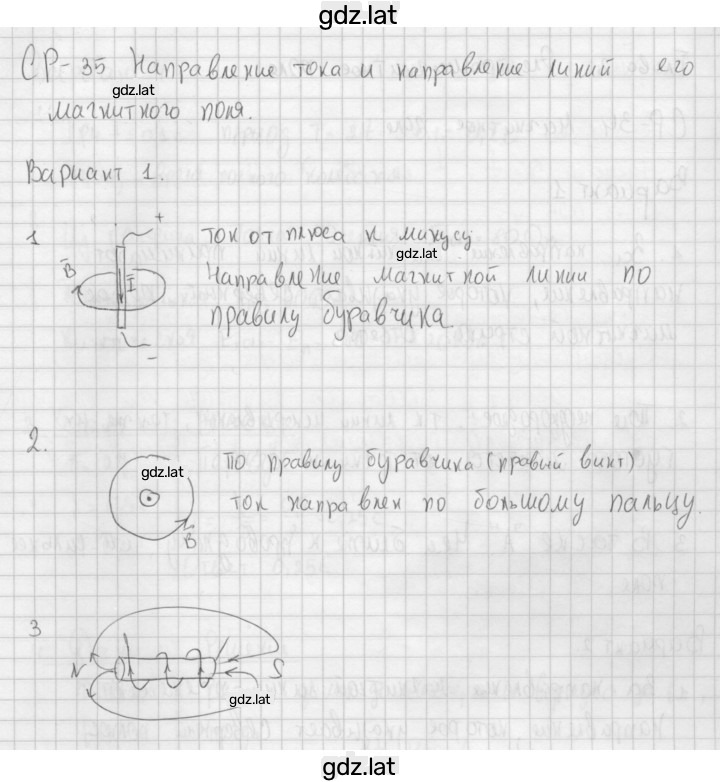 gdz.lat
СР-35 Направление тока и направление линий его
gdz.lat
магнитного поля.
Вариант 1.
1
+
ток от плюса к минусу
gdz.lat
B
I
Направление магнитной линии по
правилу буравчика.
−
2.
gdz.lat
По правилу буравчика (правый винт)
ток направлен по большому пальцу.
B
3
N
S
gdz.lat
gdz.lat